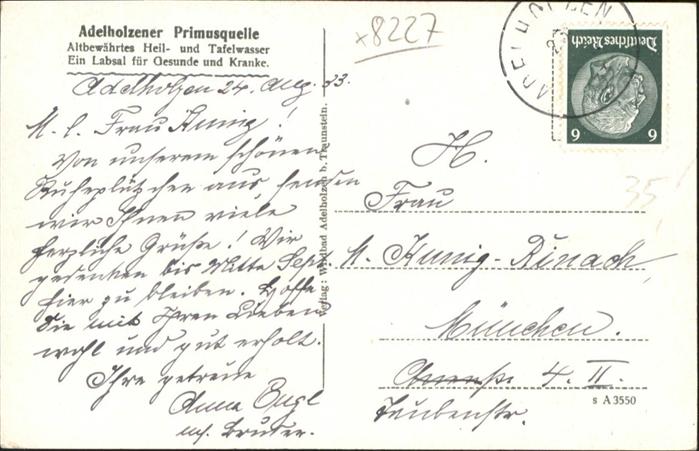 Adelholzener Primusquelle
Altbewährtes Heil- und Tafelwasser
Ein Labsal für Gesunde und Kranke.
x8227
ADELHOLZEN
Deutsches Reich
6 6
Adelholzen 24. Aug. 33.
M. l. Frau Kunig!
Von unserem schönen
Ruheplätzchen aus senden
wir Ihnen viele
herzliche Grüße! Wir
gedenken bis Mitte Sept.
hier zu bleiben. Hoffe
Sie mit Ihren Lieben
wohl und gut erholt.
Ihre getreue
Anna Engl
Bruder.
Verlag: Wildbad Adelholzen b. Traunstein.
H.
Frau
M. Kunig-Rinach
München.
4. II.
Taubenstr.
35
s A 3550